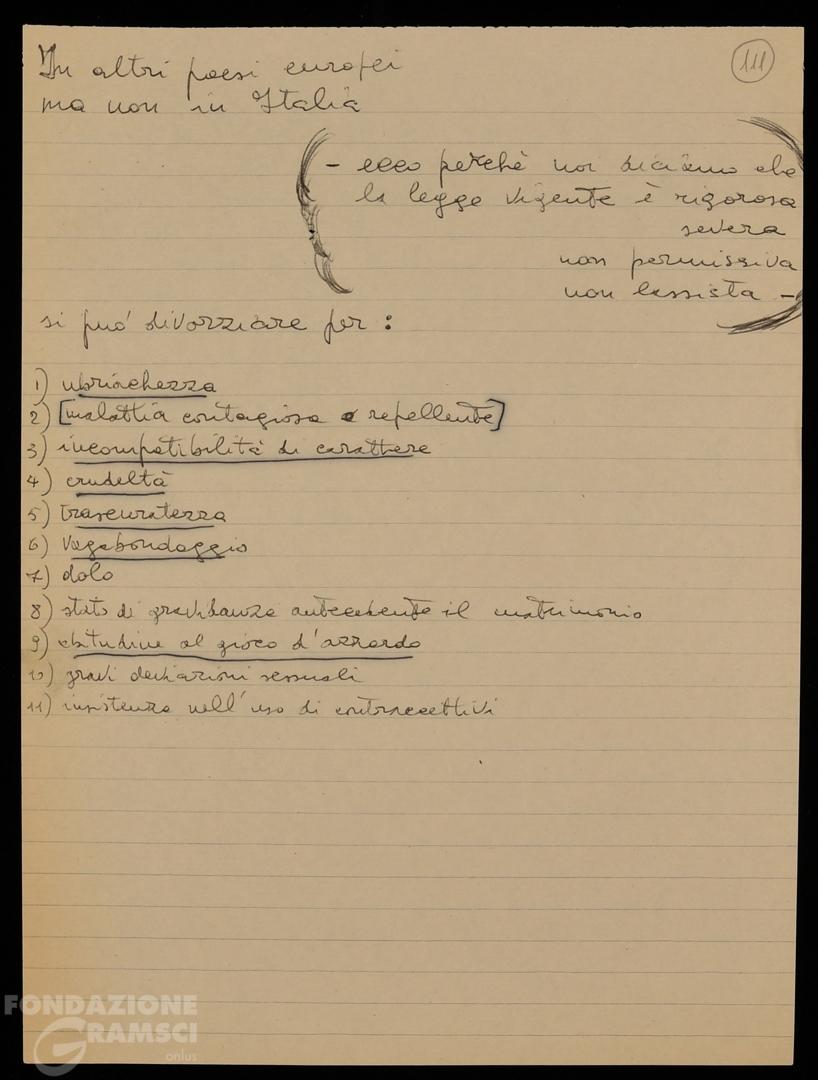 In altri paesi europei
111
ma non in Italia
- ecco perchè noi diciamo che
la legge vigente è rigorosa
severa
non permissiva
non lassista -
si può divorziare per :
1) ubriachezza
2) [malattia contagiosa e repellente]
3) incompatibilità di carattere
4) crudeltà
5) trascuratezza
6) vagabondaggio
7) dolo
8) stato di gravidanza antecedente il matrimonio
9) abitudine al gioco d'azzardo
10) gravi deviazioni sessuali
11) insistenza nell'uso di contraccettivi
FONDAZIONE
GRAMSCI
onlus